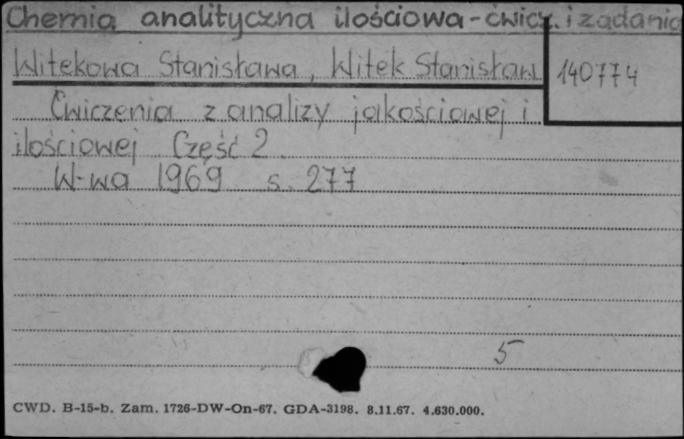 Chemia analityczna ilościowa - ćwicz. i zadania
Witekowa Stanisława, Witek Stanisław
140774
Ćwiczenia z analizy jakościowej i
ilościowej Część 2.
W-wa 1969 s. 277
5
CWD. B-15-b. Zam. 1726-DW-On-67. GDA-3198. 8.11.67. 4.630.000.